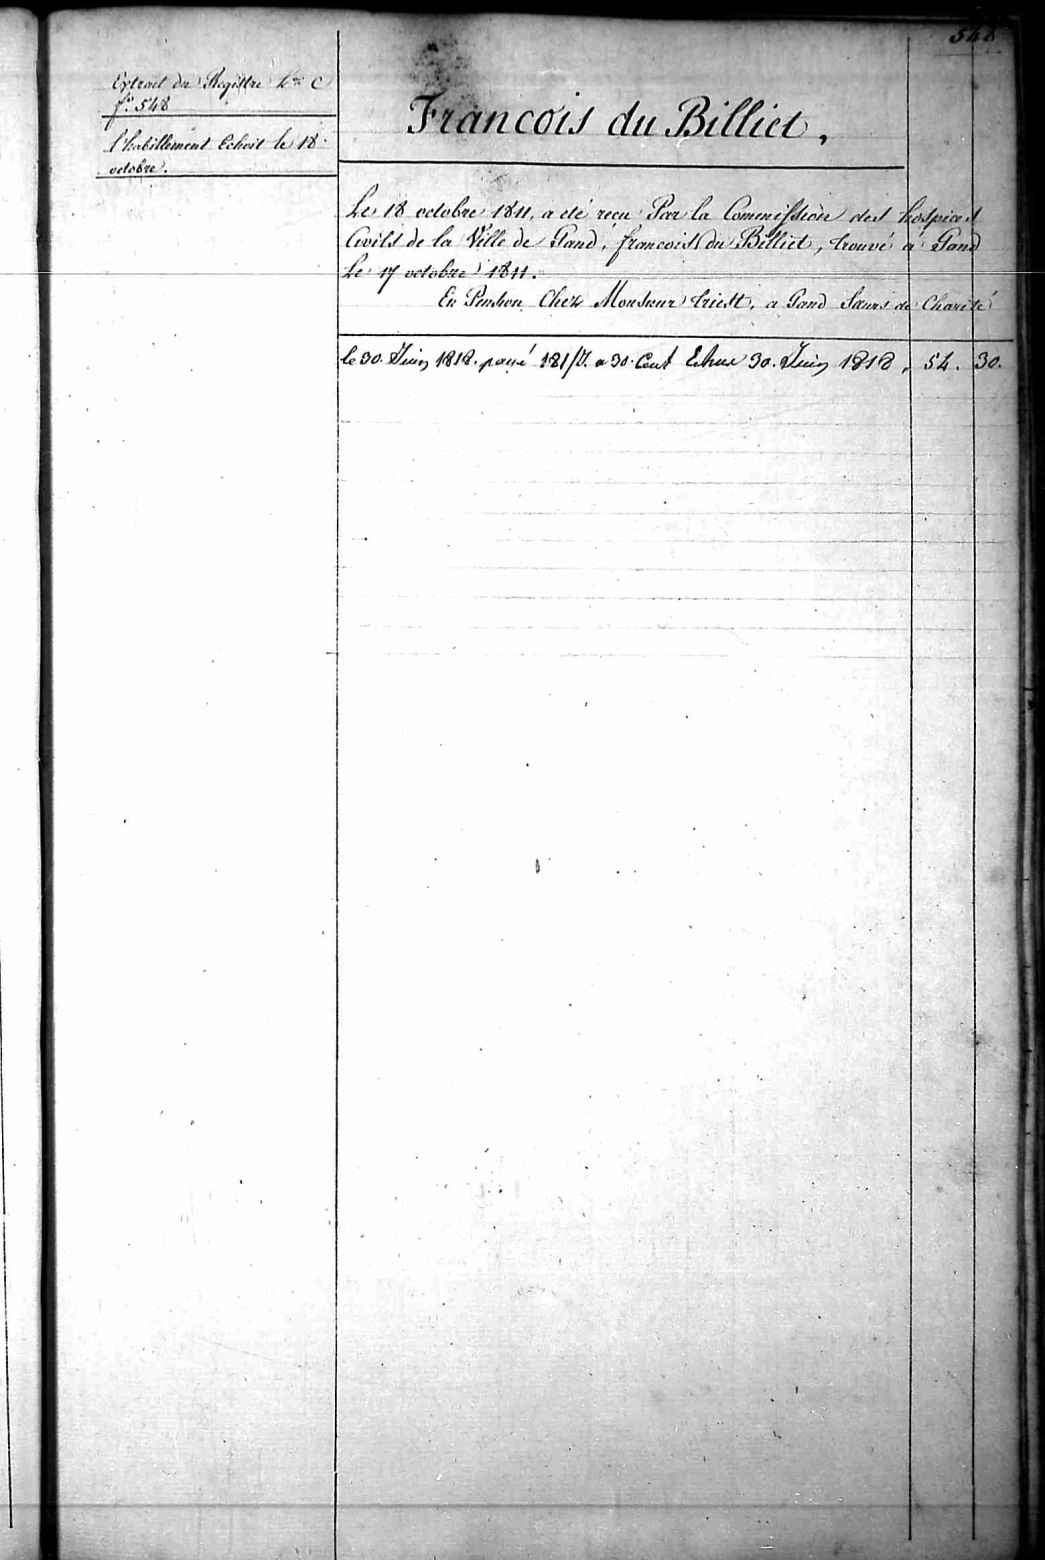 548
Extrait du Registre L.re C
f.o 548
l'habillement Echoit le 18
octobre.
Francois du Billiet,
Le 18 octobre 1811, a eté recu Par la Commission des hospices
Civils de la Ville de Gand, francois du Billiet, trouvé a Gand
Le 17 octobre 1811.
En Pension Chez Monsieur triest, a Gand Sœurs de Charité
le 30. Juin 1818. payé 181/J. a 30. Cent Echue 30. Juin 1818, 54. 30.